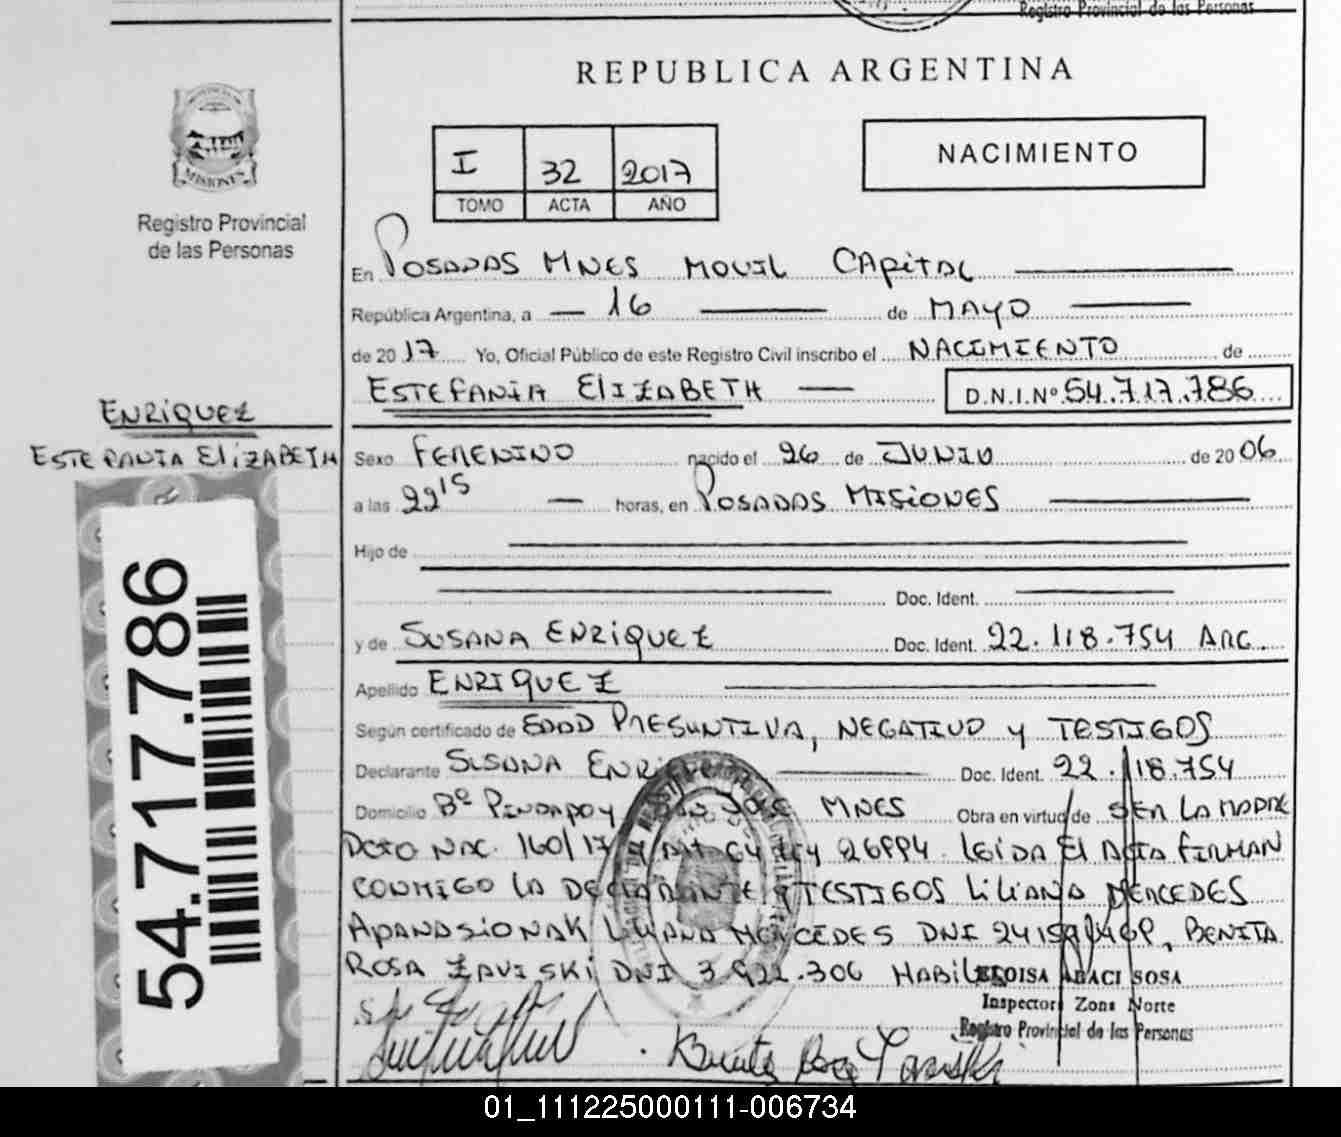 Registro Provincial de las Personas
REPUBLICA ARGENTINA
PROVINCIA DE
MISIONES
Registro Provincial
de las Personas
I 32 2017
TOMO ACTA AÑO
NACIMIENTO
En POSADAS MNES MOVIL CAPITAL
República Argentina, a 16 de MAYO
de 2017 Yo, Oficial Público de este Registro Civil inscribo el NACIMIENTO de
ESTEFANIA ELIZABETH D.N.I.Nº 54.717.786
ENRIQUEZ
ESTEFANIA ELIZABETH
Sexo FEMENINO nacido el 26 de JUNIO de 2006
a las 22 15 horas, en POSADAS MISIONES
Hijo de
Doc. Ident.
y de SUSANA ENRIQUEZ Doc. Ident. 22.118.754 ARG.
Apellido ENRIQUEZ
Según certificado de EDAD PRESUNTIVA, NEGATIVO Y TESTIGOS
Declarante SUSANA ENRIQUEZ Doc. Ident. 22.118.754
Domicilio Bº PINDAPOY SAN JOSE MNES Obra en virtud de SER LA MADRE
DCTO NAC. 160/17 LEIDA EL ACTA FIRMAN
CONMIGO LA DECLARANTE Y TESTIGOS LILIANA MERCEDES
APANASIONAK LILIANA MERCEDES DNI BENITA
ROSA ZAVISKI DNI 3.922.306
ELOISA ABACI SOSA
Inspector Zona Norte
Registro Provincial de las Personas
54.717.786
01_111225000111-006734